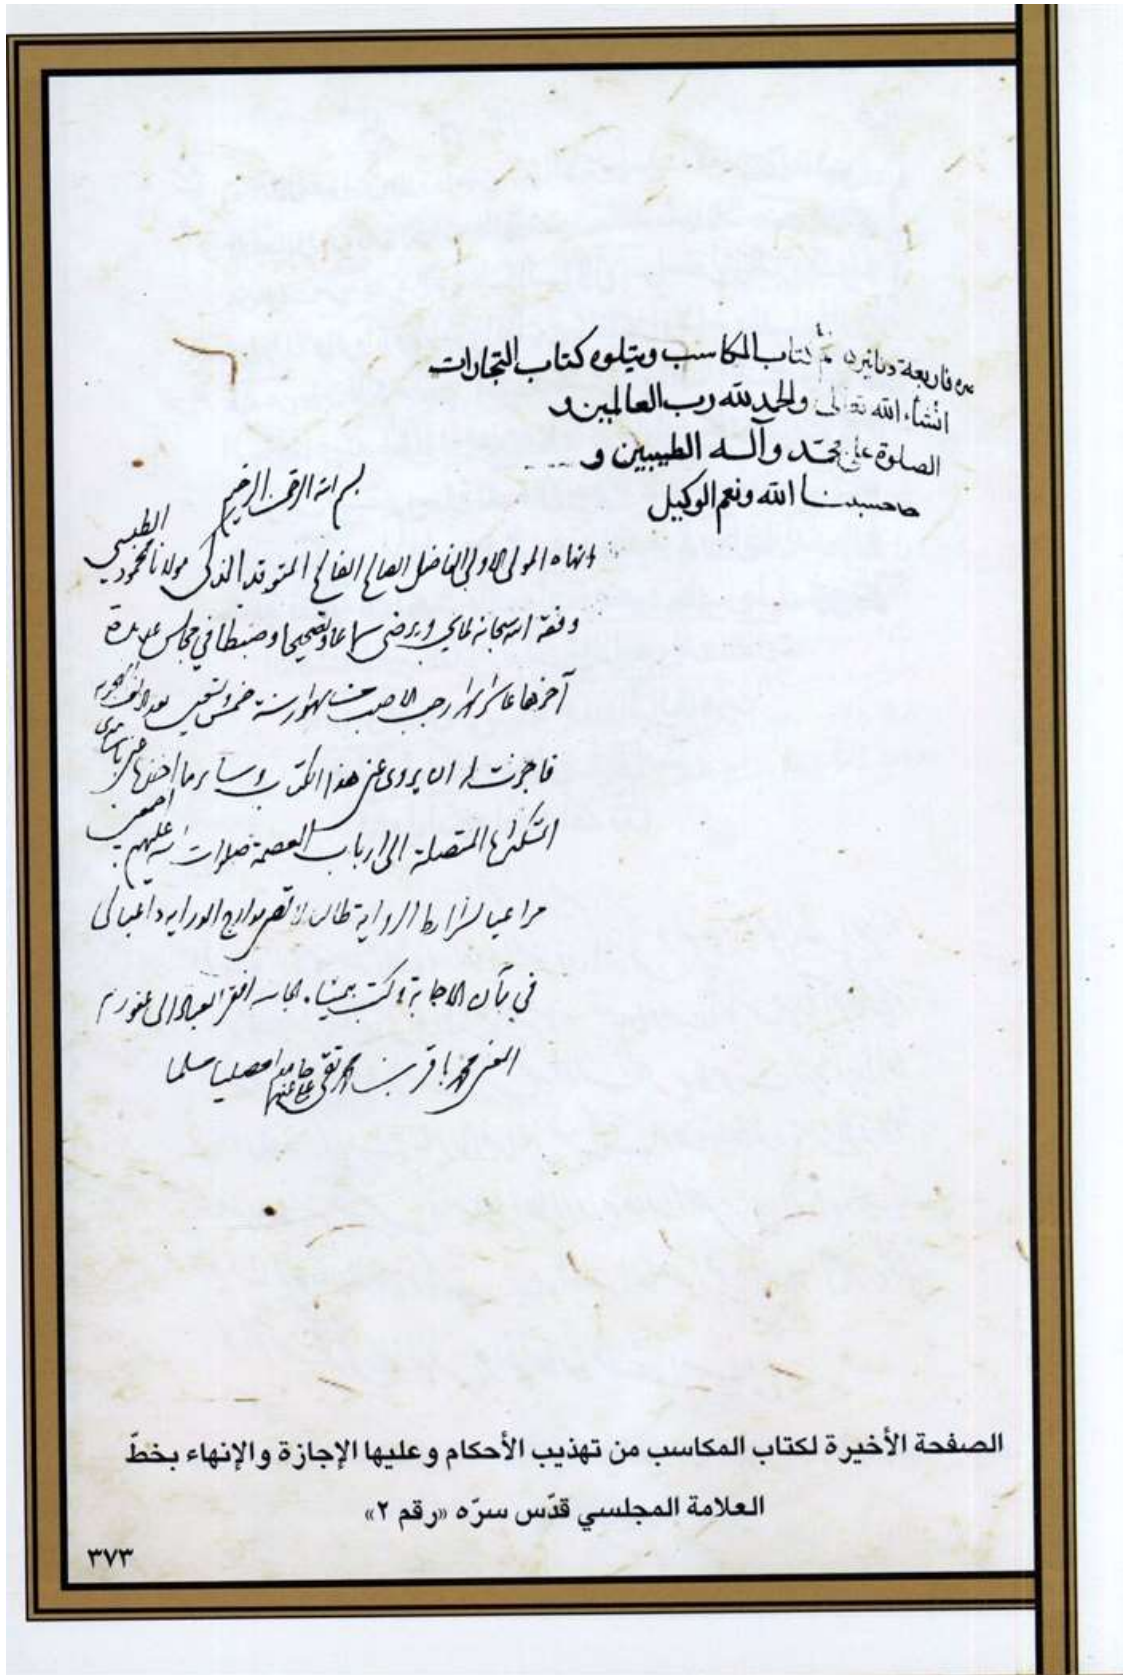 فاربعة دنانير تم كتاب المكاسب ويتلوه كتاب التجارات
انشاء الله تعالى والحمد لله رب العالمين و
الصلوة على محمد وآله الطيبين و
حسبنا الله ونعم الوكيل
بسم الله الرحمن الرحيم
انهاه المولى الاولى الفاضل الصالح الفالح المتوقد الذكي مولانا محمود الطبسي
وفقه الله سبحانه لما يحب ويرضى سماعا وتصحيحا وضبطا في مجالس عديدة
آخرها عاشر شهر رجب الاصب من شهور سنة خمس وتسعين بعد الالف الهجرية
فاجزت له ان يروي عني هذا الكتاب وسائر ما اخذه عني باسانيدي
المتكثرة المتصلة الى ارباب العصمة صلوات الله عليهم اجمعين
مراعيا لشرائط الرواية طالبا لاقصى مدارج الدراية داعيا لي
في مآن الاجابة وكتب بيمناه الجانية افقر العباد الى عفو ربه
الغني محمد باقر بن محمد تقي عفي عنهما حامدا مصليا مسلما
الصفحة الأخيرة لكتاب المكاسب من تهذيب الأحكام وعليها الإجازة والإنهاء بخطّ
العلامة المجلسي قدّس سرّه «رقم ٢»
٣٧٣